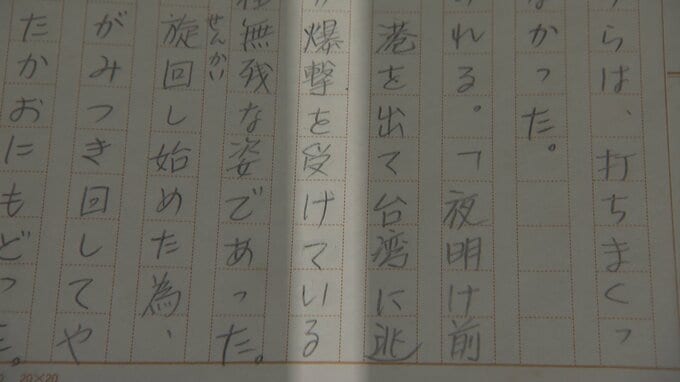 らは、打ちまくっ
なかった。
れる。「夜明け前
港を出て台湾に逃
爆撃を受けている
無残な姿であった。
せんかい
旋回し始めた為、
がみつき回してや
たかおにもどった。
20×20